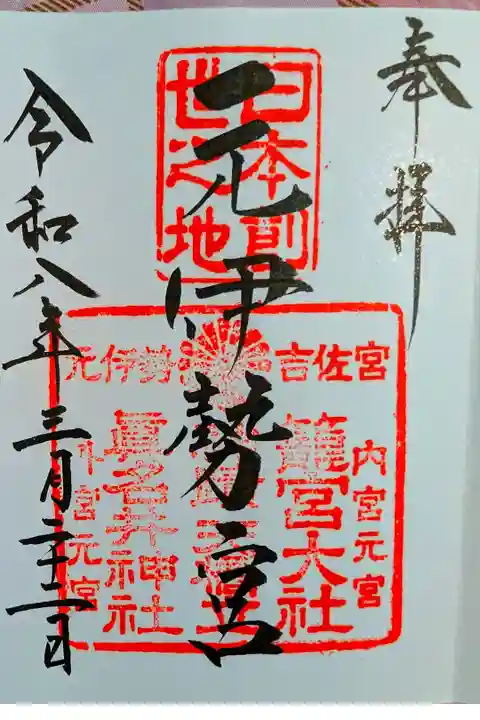 奉拝
日本創
世之地
元伊勢宮
宮佐吉
勢伊元
内宮元宮
籠宮大社
眞名井神社
外宮元宮
令和八年三月二十二日